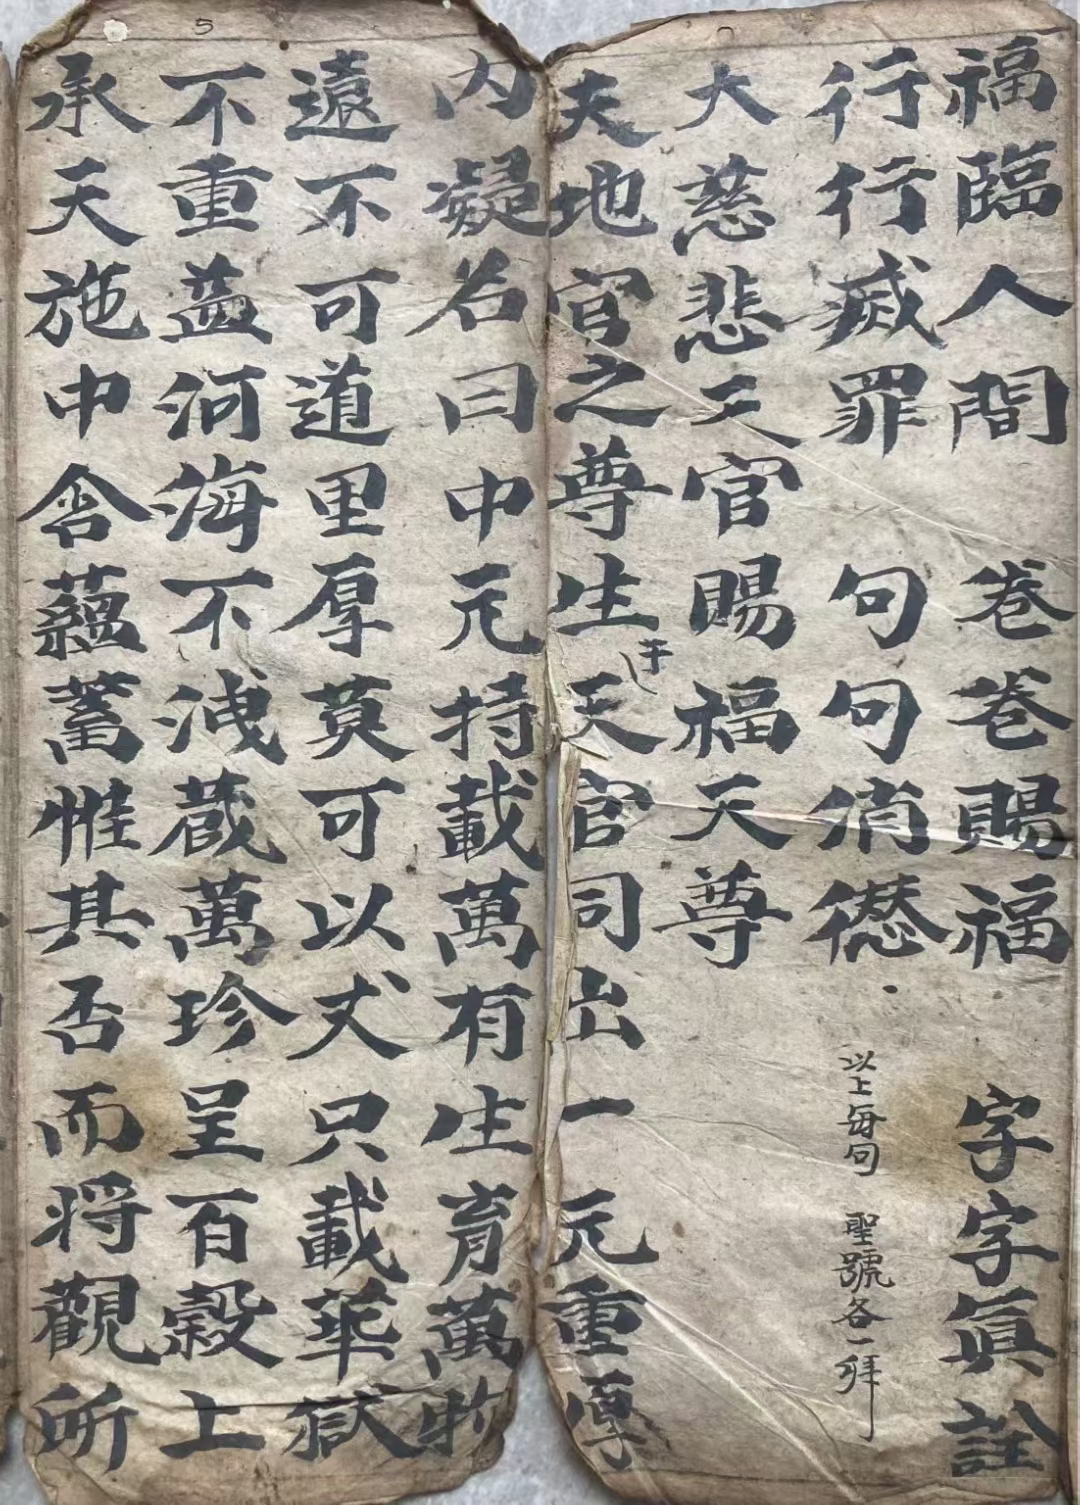 福臨人間 卷卷賜福 字字眞詮
行行滅罪 句句消愆
以上每句 聖號各一拜
大慈悲三官賜福天尊
夫地官之尊生于天官司出一元重厚
內凝名曰中元持載萬有生育萬物
遠不可道里厚莫可以丈只載華獄
不重葢河海不洩蔵萬珍呈百穀上
承天施中含蘊蓄惟其否而將觀所
5